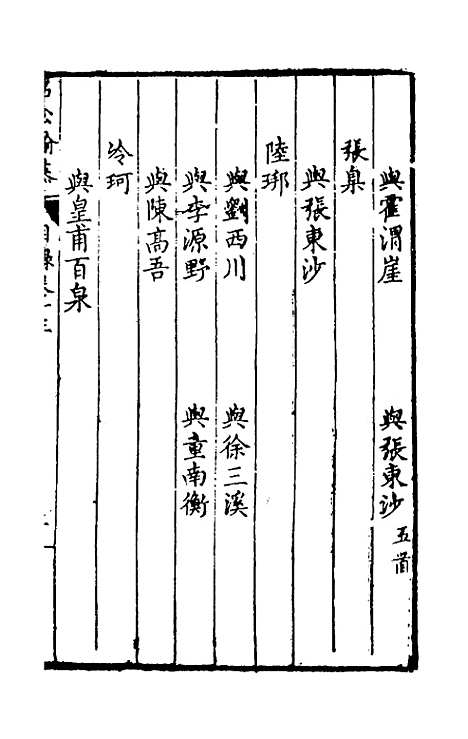 與霍渭崖 與張東沙五首
張臬
與張東沙
陸琊
與劉西川 與徐三溪
與李源野 與童南衡
與陳高吾
冷珂
與皇甫百泉
名公翰藻 目錄卷十三